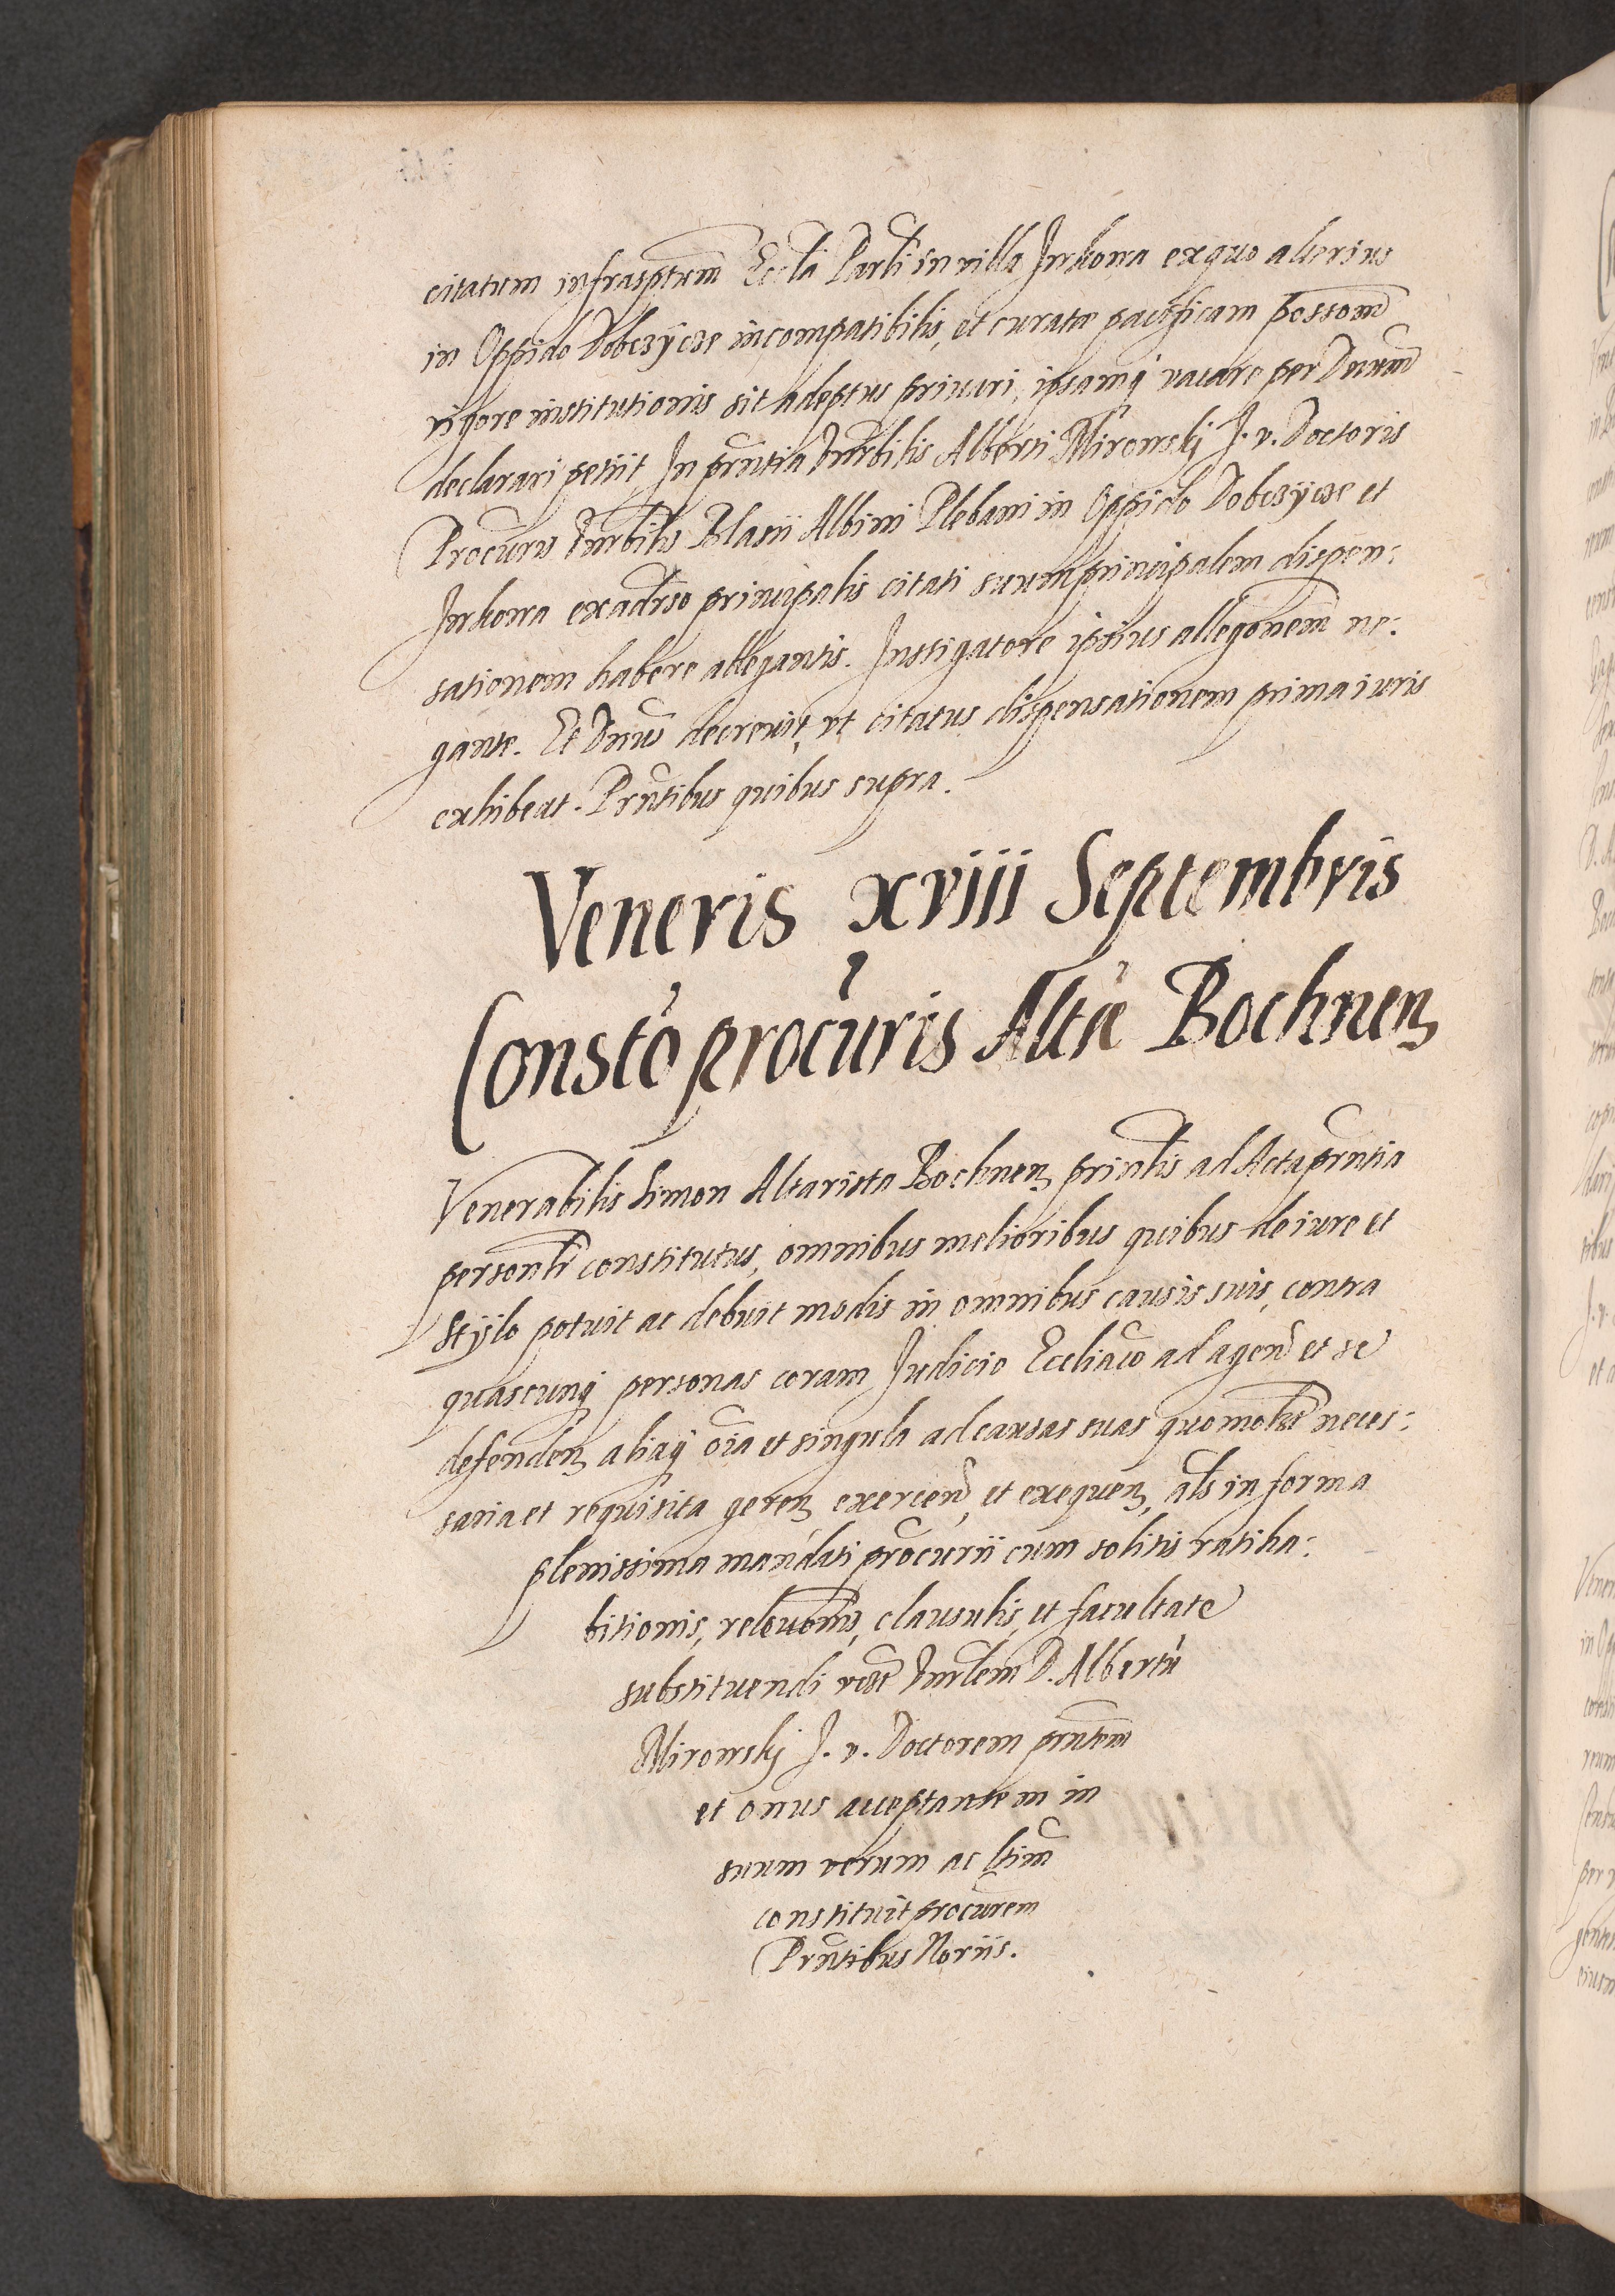 citatum infrascptum Eccla Parli in villa Jnkowa ex quo alterius
in Oppido Dobczÿcze incompatibilis, et curatæ pacificam possom
vigore institutionis sit adeptus privari, ipsamq vacare per Dnum
declarari petiit In pntia Vnrbilis Alberti Mirowskj J. v. Doctoris
Procuris Vnrbilis Blasii Albini Plebani in Oppido Dobczÿcze et
Jnkowa ex adrso principalis citati suum principalem dispen:
sationem habere allegantis. Instigatore ipsius allegonem ne:
gante. Et Dnus decrevit, vt citatus dispensationem prima iuris
exhibeat. Prntibus quibus supra.
Veneris xviii Septembris
Consto procuris Altæ Bochnen
Venerabilis Simon Altarista Bochnen prinlis ad Acta prntia
personlr constitutus, omnibus melioribus quibus de iure et
stÿlo potuit ac debuit modis in omnibus causis suis, contra
quascunq personas coram Judicio Eccliaco ad agend et se
defenden aliaq oia et singula ad causas suas quomolt neces:
saria et requisita geren exercend, et exequen, als in forma
plenissima mandati procurii cum solitis ratiha:
bitionis, relevonis, clausulis, et facultate
substituendi vnse Vnrlem D. Albertu
Mirowskj J. v. Doctorem prntem
et onus acceptantem in
suum verum ac ltimu
constituit procurem
Prntibus Noriis.